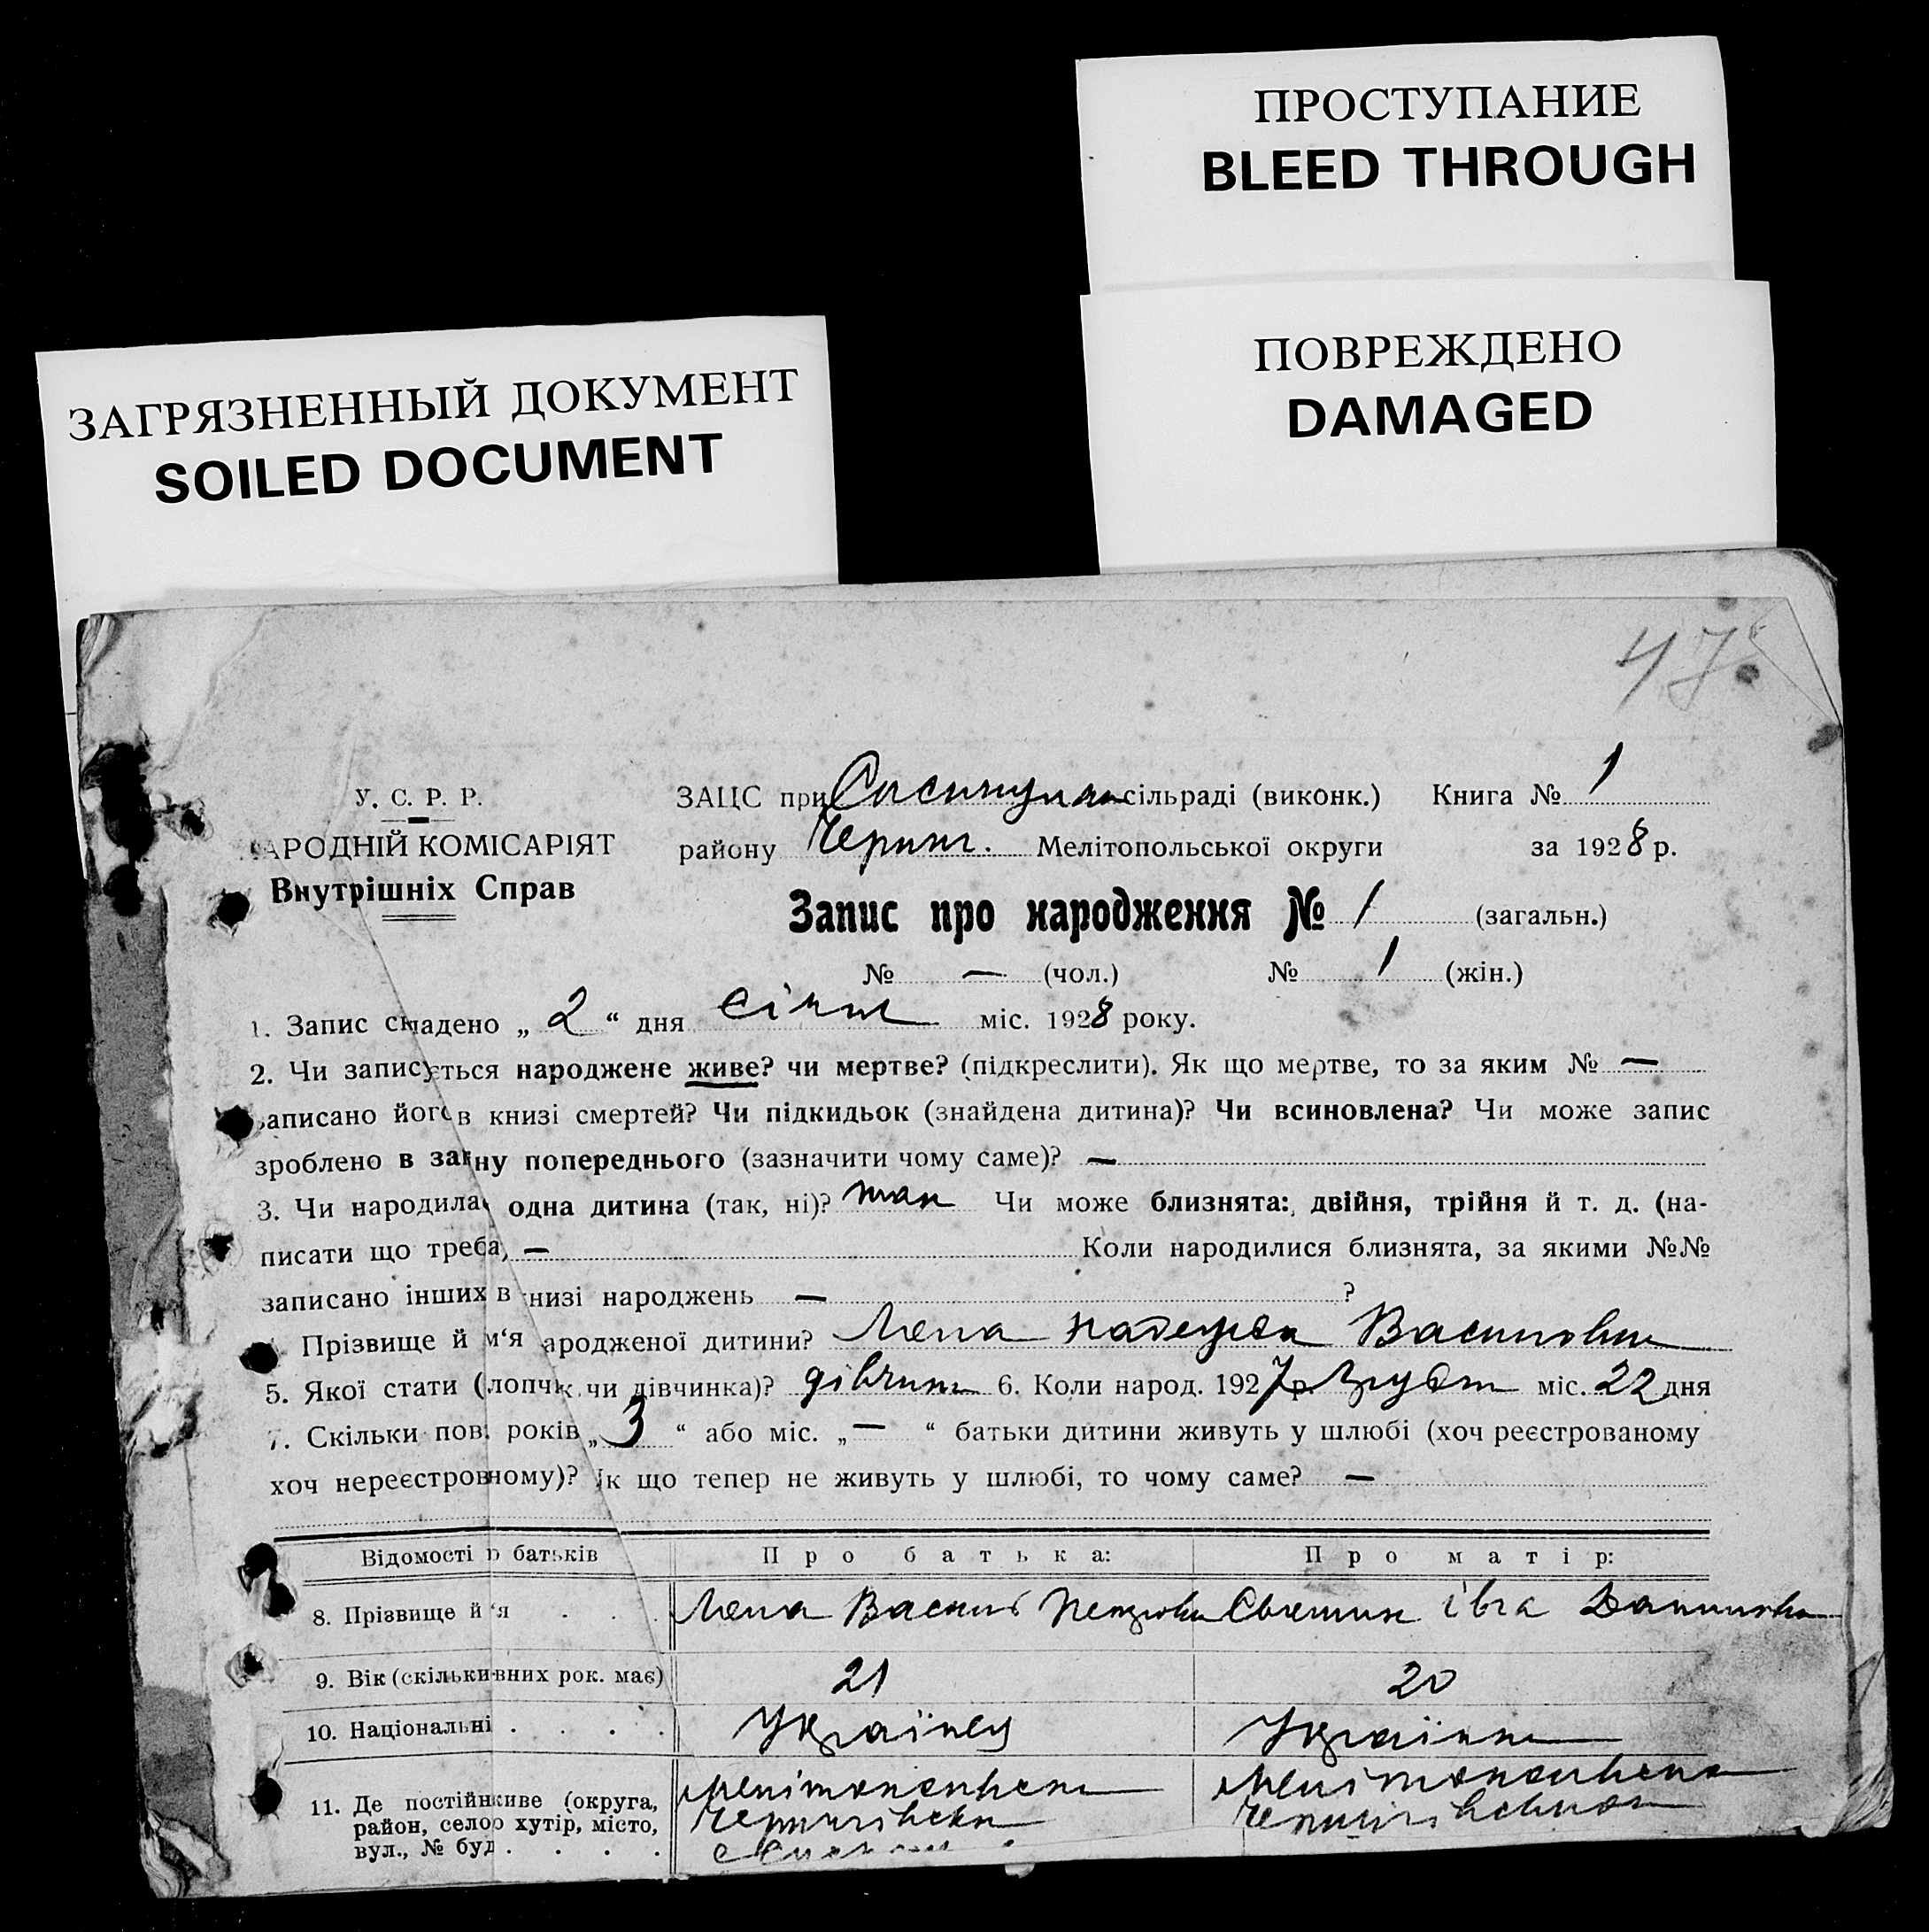 ПРОСТУПАНИЕ
BLEED THROUGH
ПОВРЕЖДЕНО
DAMAGED
ЗАГРЯЗНЕННЫЙ ДОКУМЕНТ
SOILED DOCUMENT
47
У. С. Р. Р.
АРОДНІЙ КОМІСАРІЯТ
Внутрішніх Справ
ЗАЦС при сільраді (виконк.) Книга № 1
району Черниг. Мелітопольської округи за 1928 р.
Запис про народження № 1 (загальн.)
№ — (чол.) № 1 (жін.)
1. Запис складено „ 2 “ дня січня міс. 1928 року.
2. Чи записується народжене живе? чи мертве? (підкреслити). Як що мертве, то за яким № —
записано його в книзі смертей? Чи підкидьок (знайдена дитина)? Чи всиновлена? Чи може запис
зроблено в заміну попереднього (зазначити чому саме)? —
3. Чи народилась одна дитина (так, ні)? так Чи може близнята: двійня, трійня й т. д. (на-
писати що треба) — Коли народилися близнята, за якими №№
записано інших в книзі народжень — ?
Прізвище й ім‘я народженої дитини? Надежда Василівна
5. Якої стати (хлопчик чи дівчинка)? дівчина 6. Коли народ. 1927 р. грудня міс. 22 дня
7. Скільки повн. років „ 3 “ або міс. „ — “ батьки дитини живуть у шлюбі (хоч реєстрованому
хоч нереєстрованому)? Як що тепер не живуть у шлюбі, то чому саме? —
Відомості про батьків Про батька: Про матір:
8. Прізвище й ім‘я . . . Василь Петрович Івга Данилівна
9. Вік (скільки повних рок. має) 21 20
10. Національні . . . . Українец Українка
11. Де постійно живе (округа, Мелітопольська Мелітопольська
район, село, хутір, місто, Чернигівськи
вул., № буд. . . . .